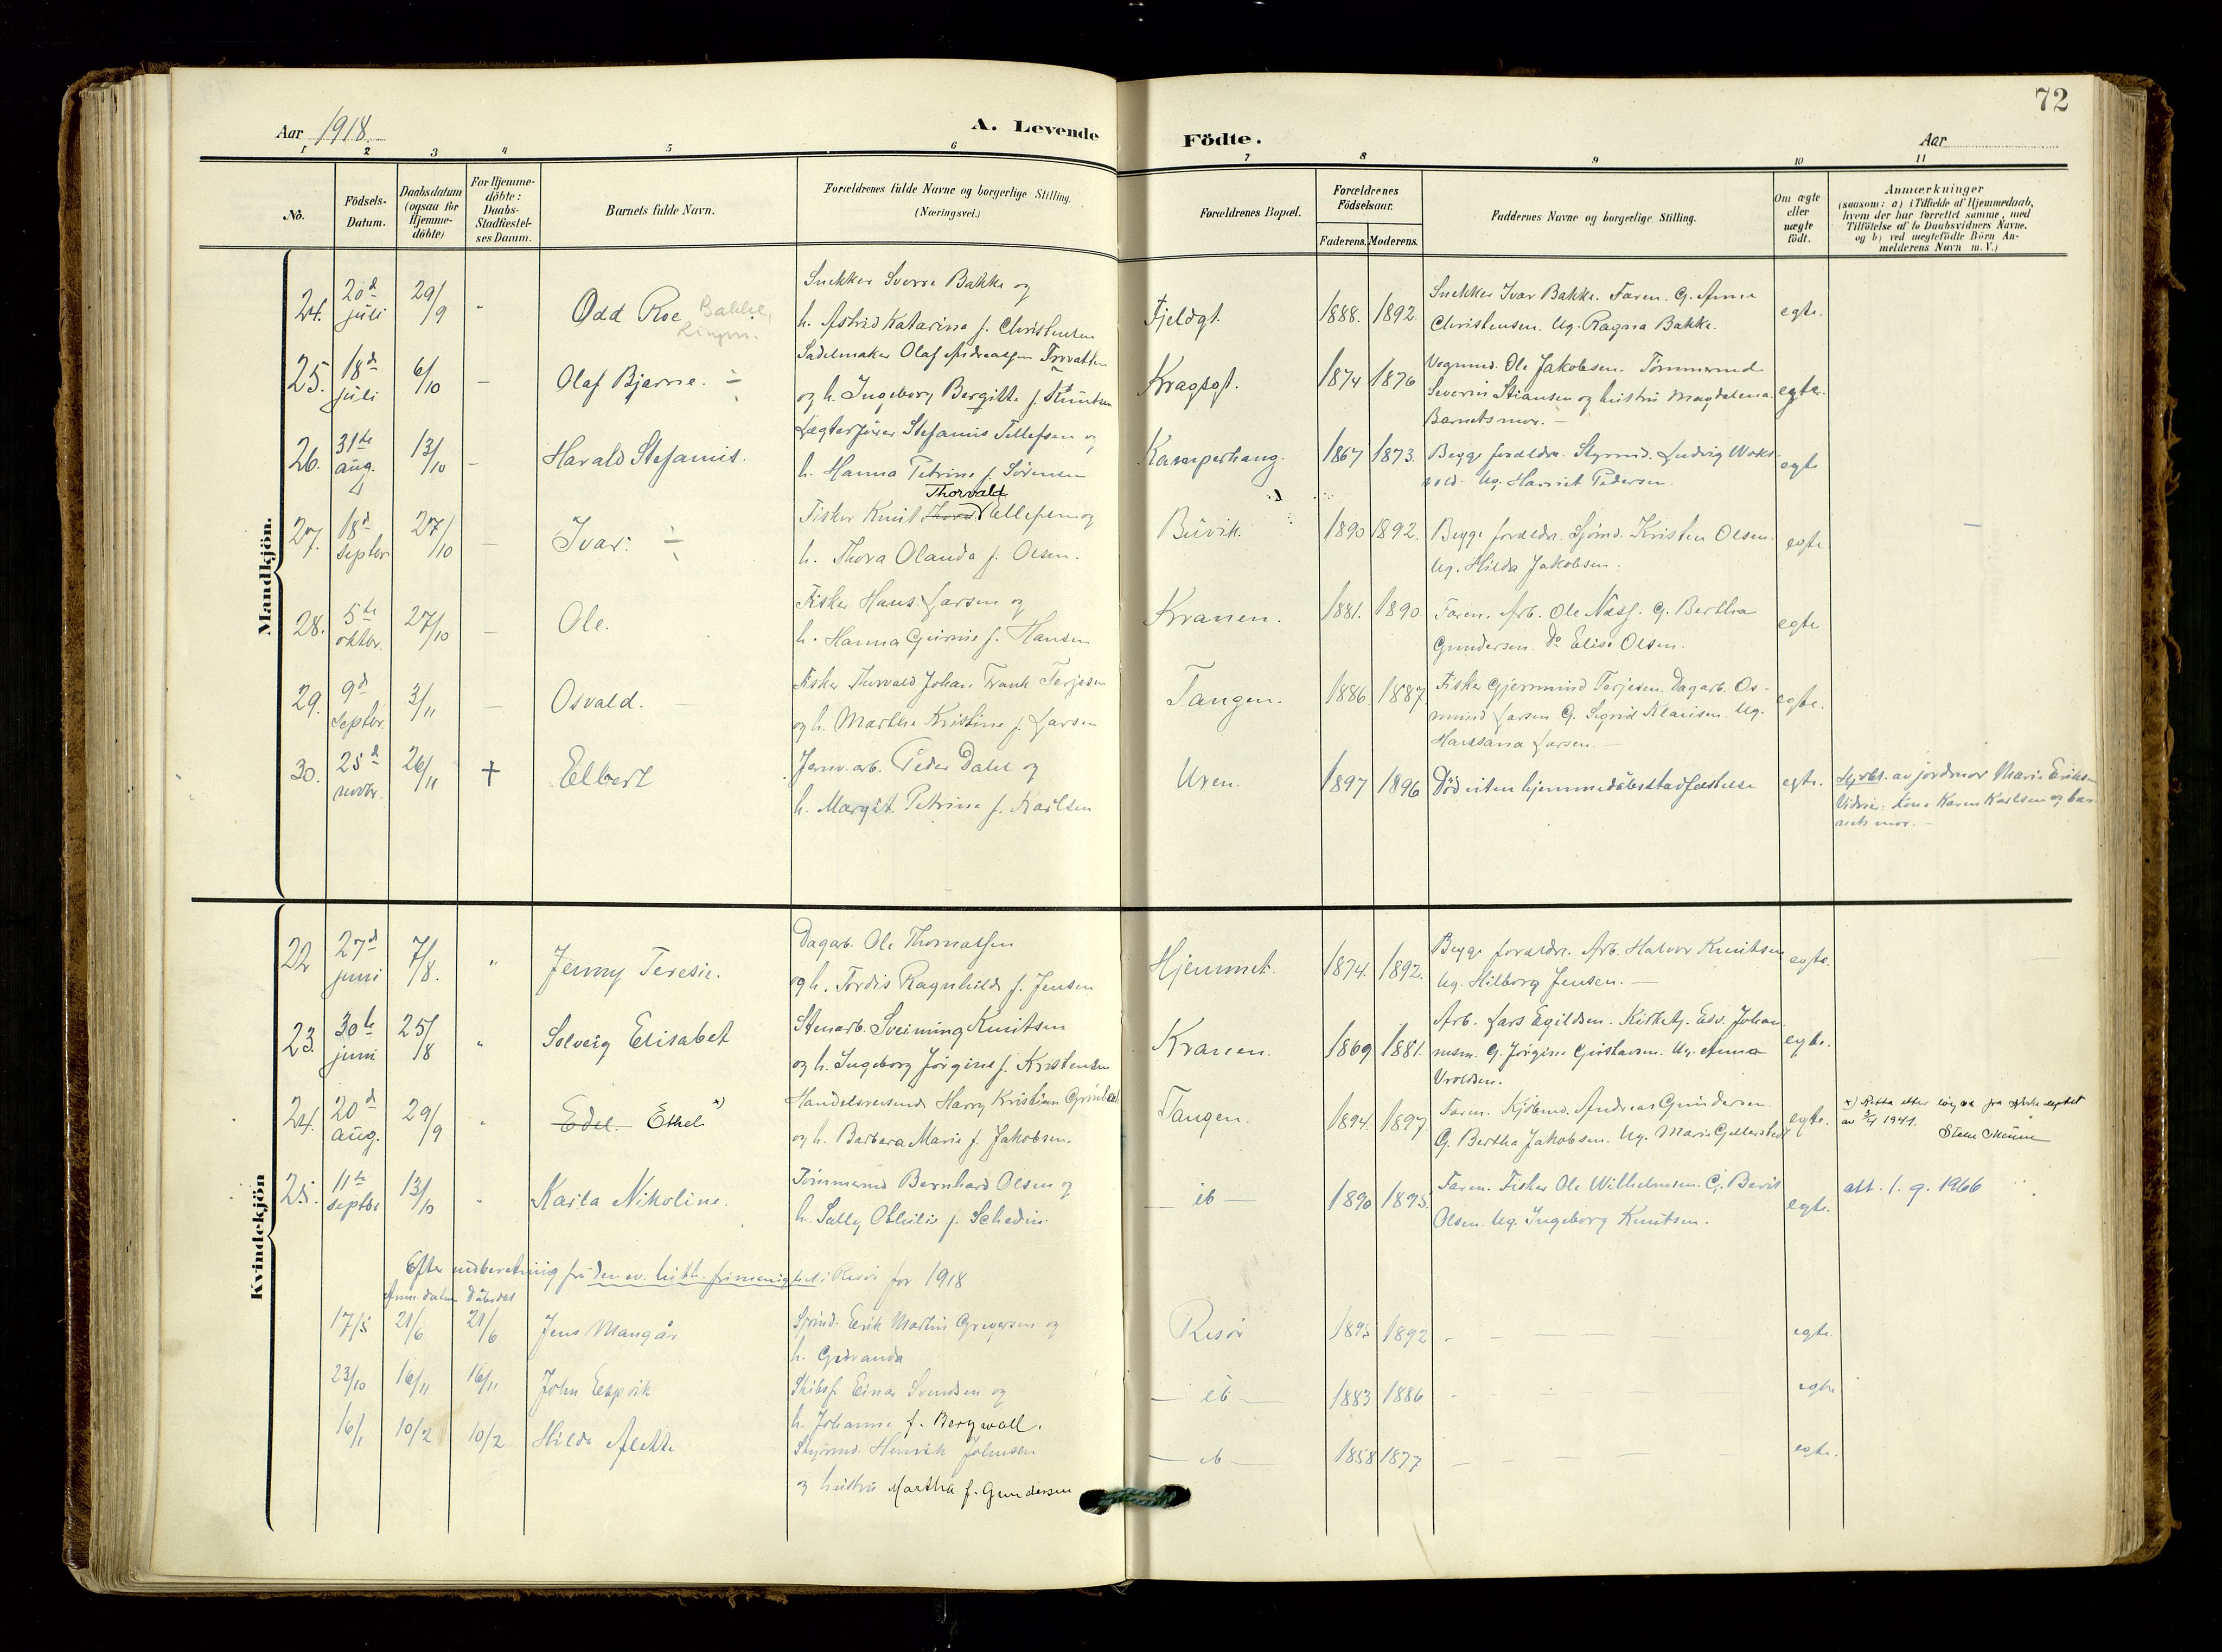 72
Aar 1918.
A. Levende Födte.
Aar
1 2 3 4 5 6 7 8 9 10 11
No.
Födsels-Datum.
Daabsdatum (ogsaa for Hjemme-döbte)
For Hjemme-döbte: Daabs-Stadfæstel-ses Datum.
Barnets fulde Navn.
Forældrenes fulde Navne og borgerlige Stilling. (Næringsvei.)
Forældrenes Bopæl.
Forældrenes Födselsaar.
Faderens. Moderens.
Faddernes Navne og borgerlige Stilling.
Om ægte eller uægte födt.
Anmærkninger
(saasom: a) i Tilfælde af Hjemmedaab,
hvem der har forrettet samme, med
Tilföielse af to Daabsvidners Navne.
og b) ved uægtefödte Börn An-
melderens Navn m. V.)
Mandkjön.
24. 20d juli 29/9 " Odd Roe Bakke,
Snekker Sverre Bakke og
h. Astrid Katarina f. Christensen
Fjeldgt. 1888. 1892.
Snekker Ivar Bakke. Faren. G. Anna
Christensen. Ug. Ragna Bakke.
egte.
25. 18d juli 6/10 — Olaf Bjarne. ÷
Sadelmaker Olaf Andreassen
og h. Ingeborg Bergitte f. Knutsen
Kragsgt. 1874 1876
Vognmd. Ole Jakobsen. Tømmermd
Severin Stiansen og hustru Magdalena.
Barnets mor. —
egte.
26. 31te aug. 13/10 — Harald Stefanus.
Lægterfører Stefanus Tellefsen og
h. Hanna Petrine f. Sørensen
Kamperhaug. 1867 1873.
Begge foreldre. Styrmd. Ludvig
Ug. Harriet Pedersen.
egte
27. 18d septbr 27/10 — Ivar. ÷
Thorvald
Fisker Knut Tellefsen og
h. Thora Olanda f. Olsen.
Buvik. 1890 1892.
Begge foreldre. Sjømd. Kristen Olsen.
Ug. Hilda Jakobsen.
egte
28. 5te oktbr. 27/10 — Ole.
Fisker Hans Larsen og
h. Hanna Gurine f. Hansen
Kranen. 1881. 1890.
Faren. Arb. Ole Næss. G. Bertha
Gundersen. Do Elise Olsen.
egte
29. 9d septbr. 3/11 — Osvald. —
Fisker Thorvald Johan Frank Terjesen
og h. Marthe Kristine f. Larsen
Tangen. 1886. 1887.
Fisker Gjermund Terjesen. Dagarb. Os-
mund Larsen G. Sigrid Klausen. Ug.
Hanssana Larsen. —
egte.
30. 25d novbr. 26/11 + Elbert
Jernv.arb. Peder Dahl og
h. Margit Petrine f. Karlsen
Uren. 1897 1896
Død uten hjemmedåbsstadfestelse
egte.
Hjdbt. av jordmor Marie Eriksen
Vidner: Lina Karen Karlsen og bar-
nets mor. —
Kvindekjön
22 27d juni 7/8. " Jenny Teresie.
Dagarb. Ole Thomassen
og h. Tordis Ragnhild f. Jensen
Hjemmet. 1874. 1892.
Begge foreldre. Arb. Halvor Knutsen
Ug. Hilborg Jensen. —
egte.
23. 30te juni 25/8 " Solveig Elisabet
Stenarb. Sveinung Knutsen
og h. Ingeborg Jørgine f. Kristensen
Kranen. 1869 1881.
Arb. Lars Egildsen. Kirketj. Edv. Johan-
nesen. G. Jørgine Gustavsen. Ug. Anna
Uroldsen.
egte.
24. 20d aug. 29/9 " Edel. Ethel x)
Handelsreisende Harry Kristian
og h. Barbara Marie f. Jakobsen.
Tangen. 1894. 1897.
Faren. Kjøbmd. Andreas Gundersen
G. Bertha Jakobsen. Ug. Marie
egte.
x) Retta etter løyve fra
av 1941.
25. 11te septbr 13/10 " Karla Nikoline.
Tømmermd Bernhard Olsen og
h. Sally Othilie f. Schedin.
— ib — 1890 1895.
Faren. Fisker Ole Wilhelmsen. G. Berit
Olsen. Ug. Ingeborg Knutsen.
egte.
att. 1.9.1966
Efter indberetning fra den ev. luth. frimenighet i Risør for 1918
Anm. datum Dåbsdat
17/5 21/6 21/6 Jens Mangår
Sjømd. Erik Martin Gregersen og
h. Gudranda
Risør 1895 1892 — egte.
23/10 16/11 16/11 John Espvik
Skibsf. Einar Svendsen og
h. Johanne f. Bergwall.
— ib — 1883 1886 egte
16/1 10/2 10/2 Hilda Alette
Styrmd. Henrik Johnsen
og hustru Martha f. Gundersen
— ib — 1858 1877 — egte.